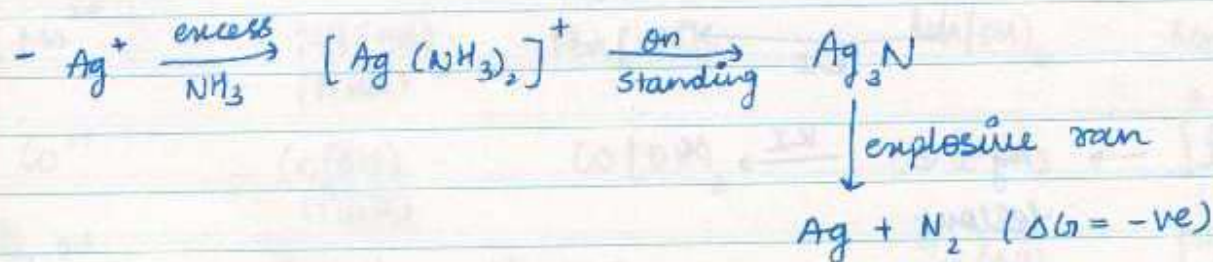 - Ag⁺ excess/NH₃ → [Ag (NH₃)₂]⁺ on/Standing → Ag₃N
↓ explosive rxn
Ag + N₂ (ΔG = -ve)